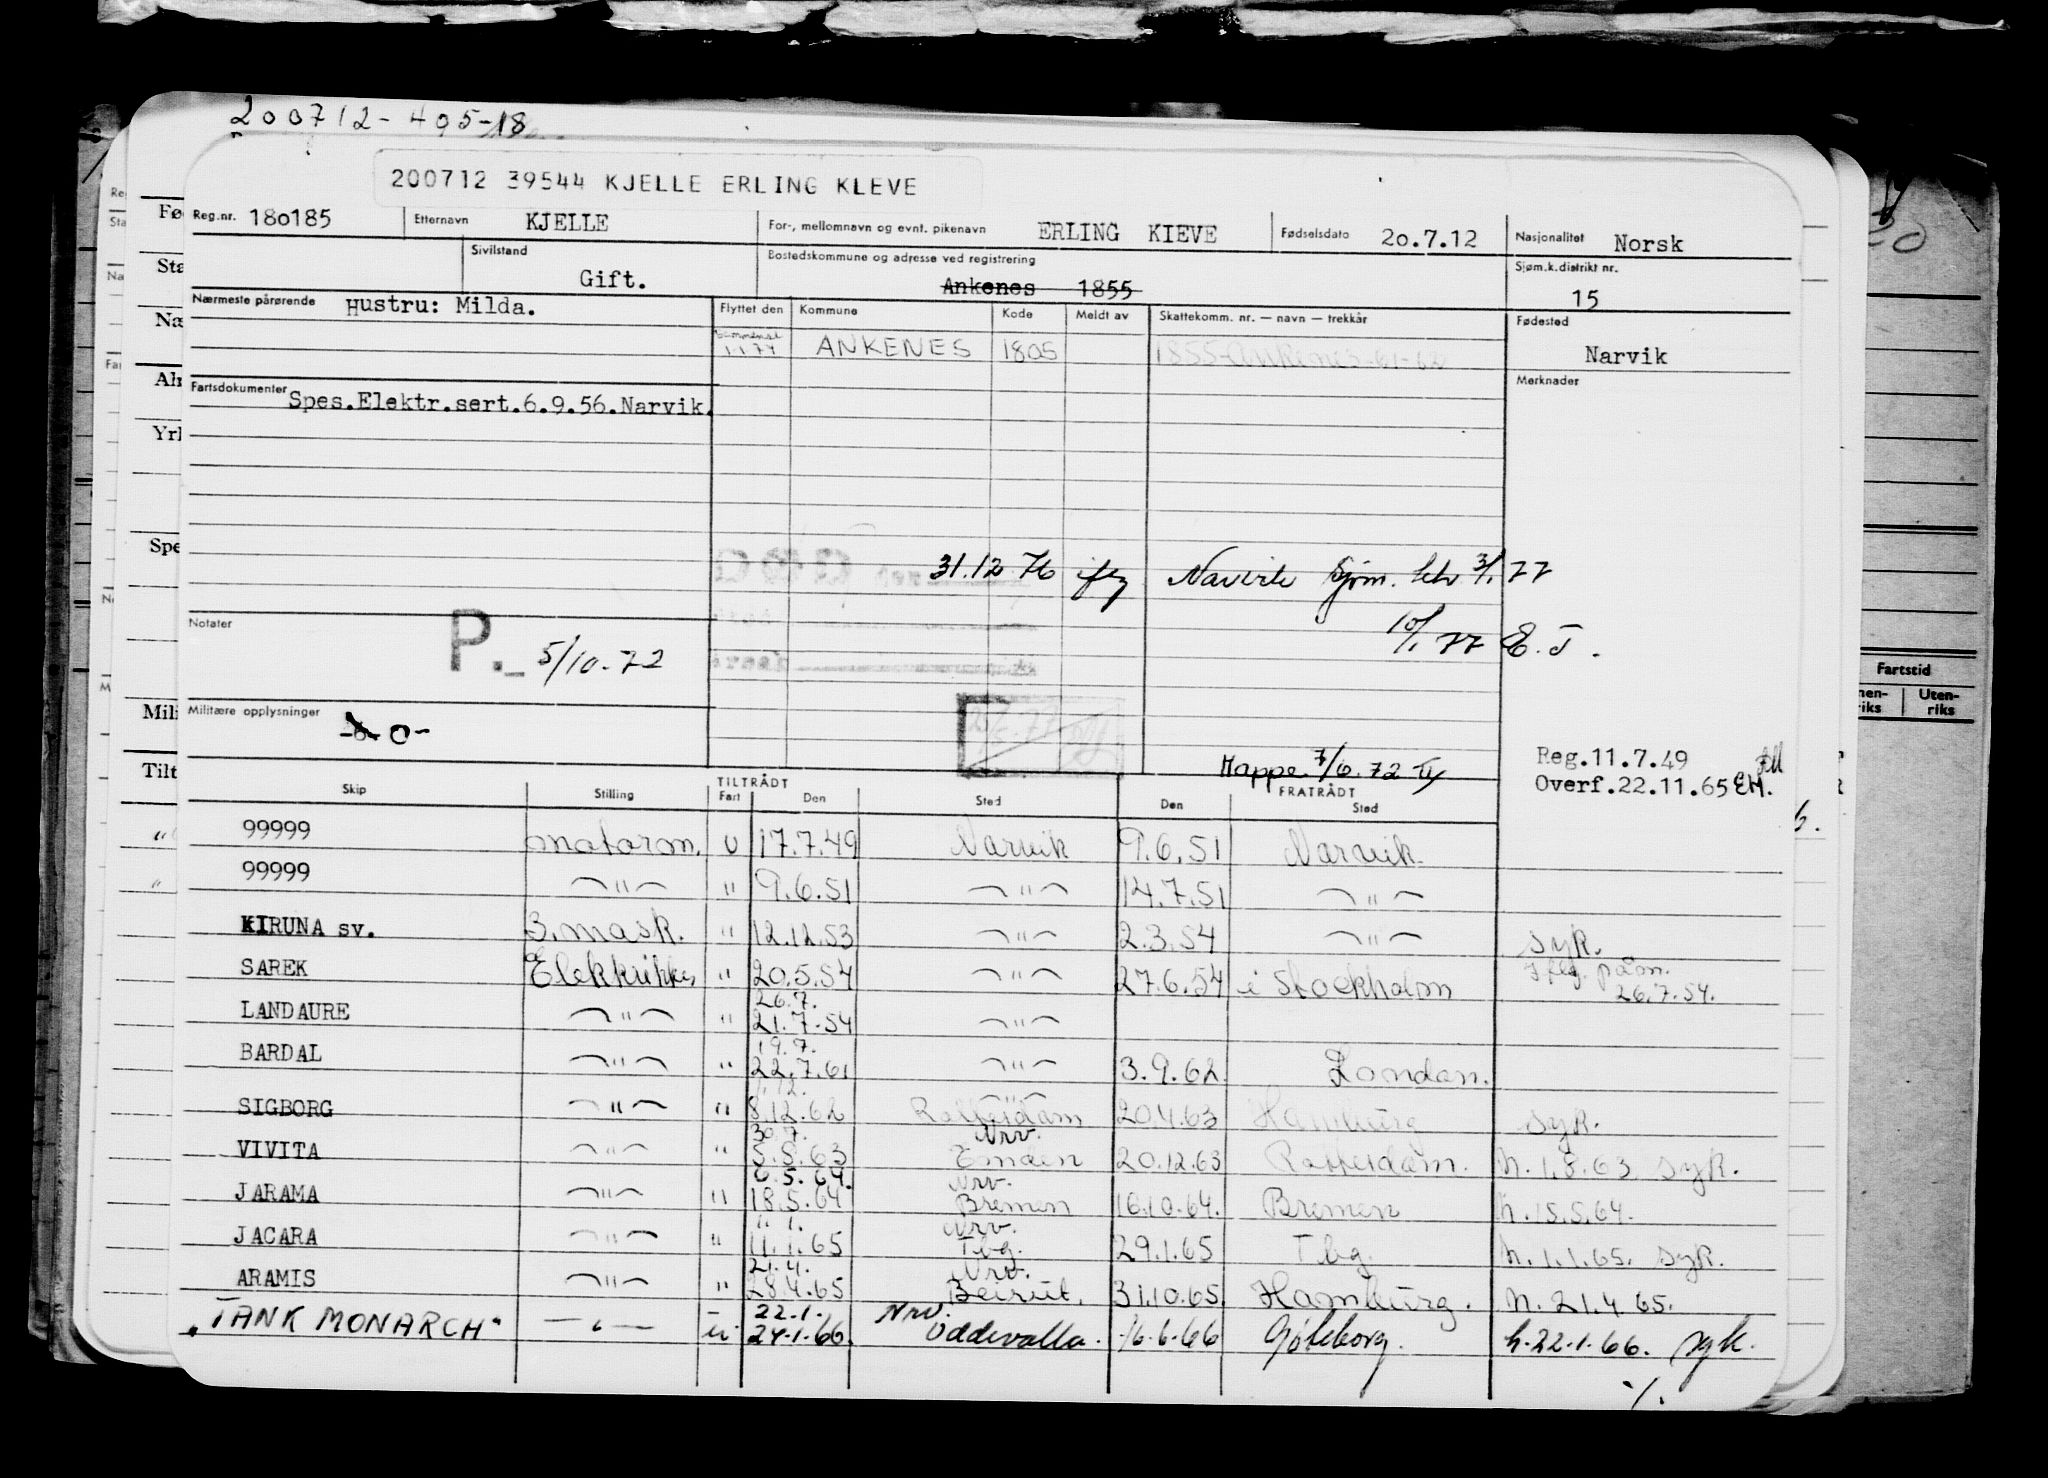 200712-405-18
200712 39544 KJELLE ERLING KLEVE
Reg.nr. 180185 Etternavn KJELLE For-, mellomnavn og evnt. pikenavn ERLING KIEVE Fødselsdato 20.7.12 Nasjonalitet Norsk
Sivilstand Gift. Bostedskommune og adresse ved registrering Ankenes 1855 Sjøm.k.distrikt nr. 15
Nærmeste pårørende Hustru: Milda. Flyttet den Kommune Kode Meldt av Skattekomm. nr. — navn — trekkår Fødested
1.1.74 ANKENES 1805 1855-Ankenes-61-62 Narvik
Fartsdokumenter Spes.Elektr.sert.6.9.56.Narvik. Merknader
31.12.76 Sjøm. 3/1 77
Notater P. 5/10-72 10/1 77 E.T.
Militære opplysninger -0-
Happe 7/6.72 Reg.11.7.49
Overf.22.11.65 EH.
TILTRÅDT FRATRÅDT
Skip Stilling Fart Den Sted Den Sted
99999 motorm. U 17.7.49 Narvik 9.6.51 Narvik
99999 —"— " 9.6.51 —"— 14.7.51 —"—
KIRUNA sv. 3.mask. " 12.12.53 —"— 2.3.54 —"— syk.
SAREK Elektriker " 20.5.54 —"— 27.6.54 i Stockholm iflg. påm.
26.7.54.
26.7.
LANDAURE —"— " 21.7.54 —"—
19.7.
BARDAL —"— " 22.7.61 —"— 3.9.62 London.
—"—
SIGBORG —"— " 8.12.62 Rotterdam 20.4.63 Hamburg syk.
30.7. Nrv.
VIVITA —"— " 5.8.63 Emden 20.12.63 Rotterdam. h. 1.8.63 syk.
6.5.64. Nrv.
JARAMA —"— " 18.5.64 Bremen 16.10.64. Bremen h.15.5.64.
Nrv.
JACARA —"— " 11.1.65 Tbg. 29.1.65 Tbg. h.1.1.65. syk.
21.4. Nrv.
ARAMIS —"— " 28.4.65 Beirut. 31.10.65. Hamburg. h. 21.4 65.
22.1. Nrv.
"TANK MONARCH" —"— u 24.1.66. Uddevalla. 16.6.66 Gøteborg. h.22.1.66. syk.
./.
Fartstid
Uten-
riks